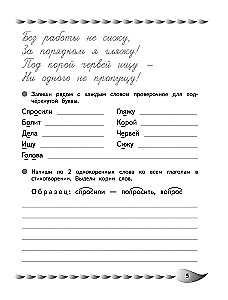 Без работы не сижу,
За порядком я гляжу!
Под корой червей ищу —
Ни одного не пропущу!
Запиши рядом с каждым словом проверочное для под-
чёркнутой буквы.
Спросили Гляжу
Болит Корой
Дела Червей
Ищу Сижу
Голова
Напиши по 2 однокоренных слова ко всем глаголам в
стихотворении. Выдели корни слов.
Образец: спросили — попросить, вопрос
5